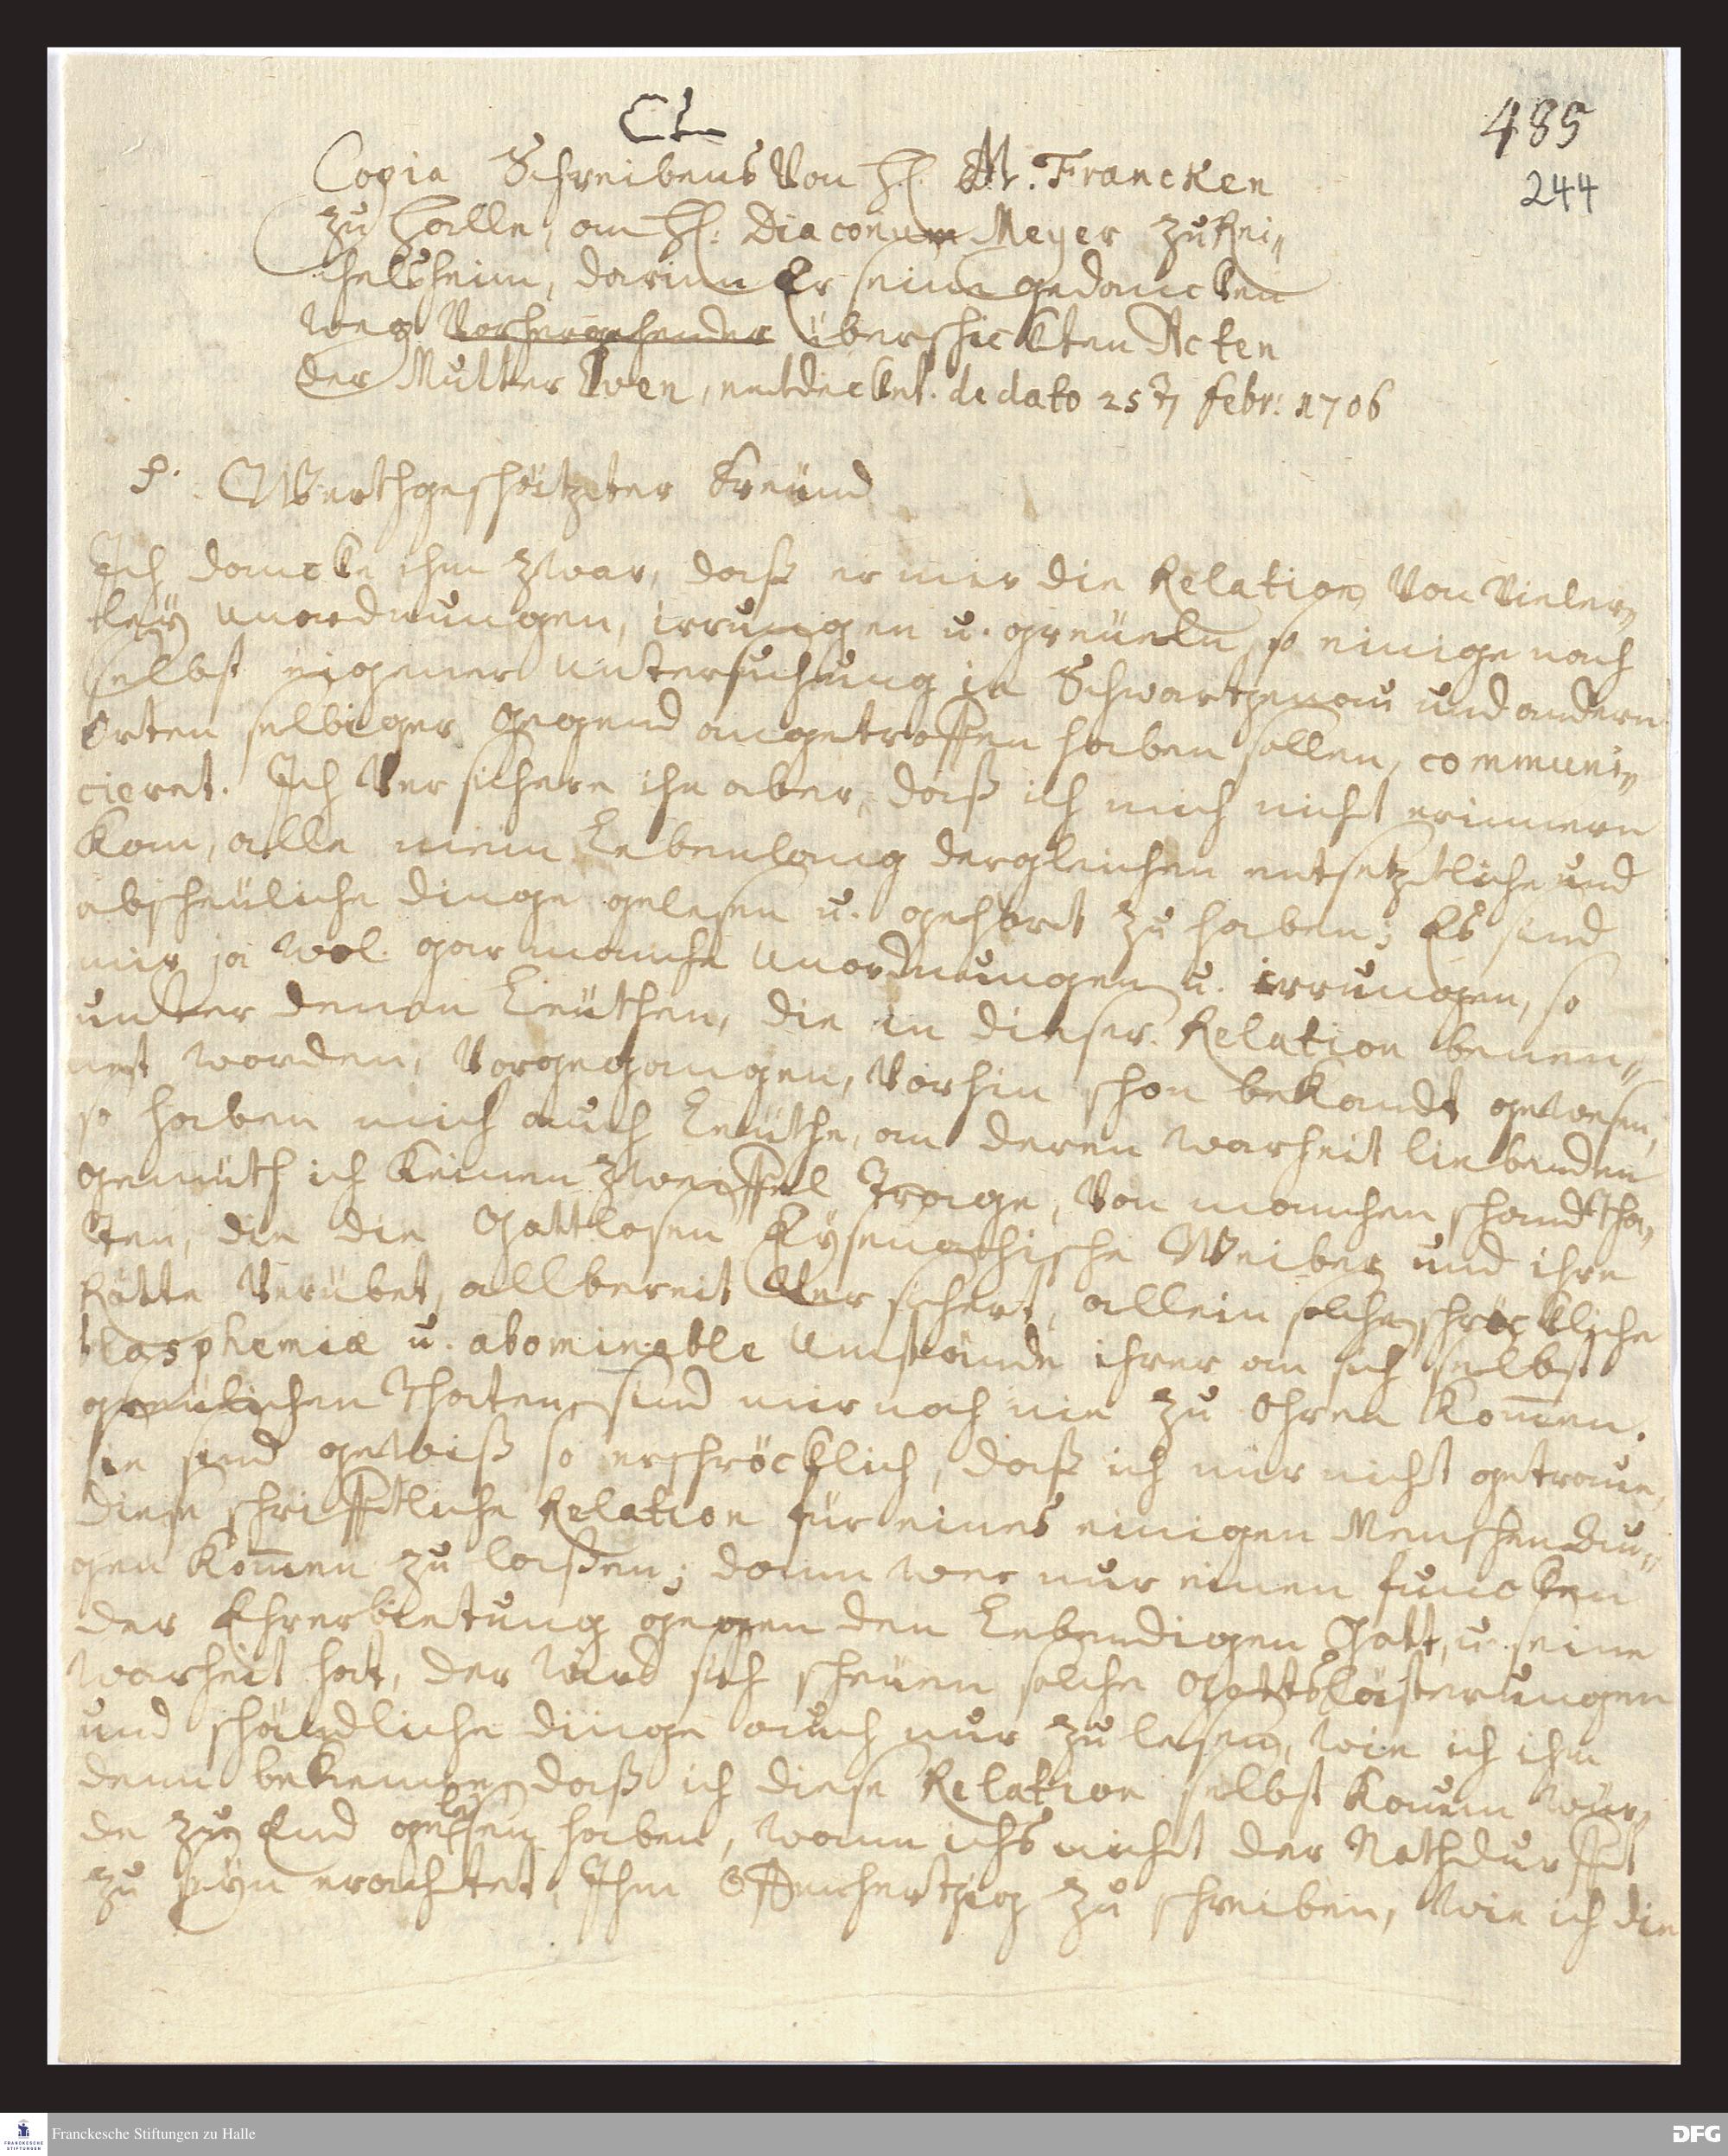 CL
485
244
Copia Schreibens Von H. M. Francken
zu Halle, an H: Diaconum Meyer zu Rei„
chelsheim, darinn Er seine gedancken
weg Vorhergehender überschickten Acten
der Mutter Even, entdecket. de dato 25t febr: 1706
P. Werthgeschätzter Freünd
Ich dancke ihm zwar, daß er mir die Relation Von Vieler„
leÿ unordnungen, irrungen u. greüeln, so einige nach
selbst eigener untersuchung in Schwartzenau und andern
Orten selbiger gegend angetroffen haben sollen, communi„
cieret. Ich Versichere ihn aber, daß ich mich nicht erinnern
kan, alle mein Lebenlang dergleichen entsetzliche und
abscheüliche dinge gelesen u. gehört zu haben; Es sind
mir ja wol gar manche unordnungen u. irrungen, so
unter denen Leüthen, die in dieser Relation benen„
net worden, Vorgegangen, Vorhin schon bekandt gewesen,
so haben mich auch Leüthe, an deren warheit liebenden
gemüth ich keinen zweiffel trage, Von manchen schandtha„
ten, die die Gottlosen Eÿsenachische Weiber und ihre
Rotte Verübet, allbereit Versichert, allein solche schröckliche
blasphemiæ u. abominable Umstände ihrer an sich selbst
greülichen Thaten, sind mir noch nie zu Ohren kom̄en.
sie sind gewiß so erschröcklich, daß ich mir nicht getraue,
diese schrifftliche Relation für eines einigen Menschen Au„
gen kom̄en zu laßen; dann wer nur einen funcken
der Ehrerbietung gegen den Lebendigen Gott, u. seine
warheit hat, der wird sich scheüen solche Gottslästerungen
und schändliche dinge auch nur zu lesen, wie ich ihm
denn bekenne, daß ich diese Relation selbst kaum wür„
de zu End gelesen haben, wann ichs nicht der Nothdurfft
zu seÿn erachtet, Ihm Offenhertzig zu schreiben, wie ich die
FRANCKESCHE STIFTUNGEN
Franckesche Stiftungen zu Halle
DFG